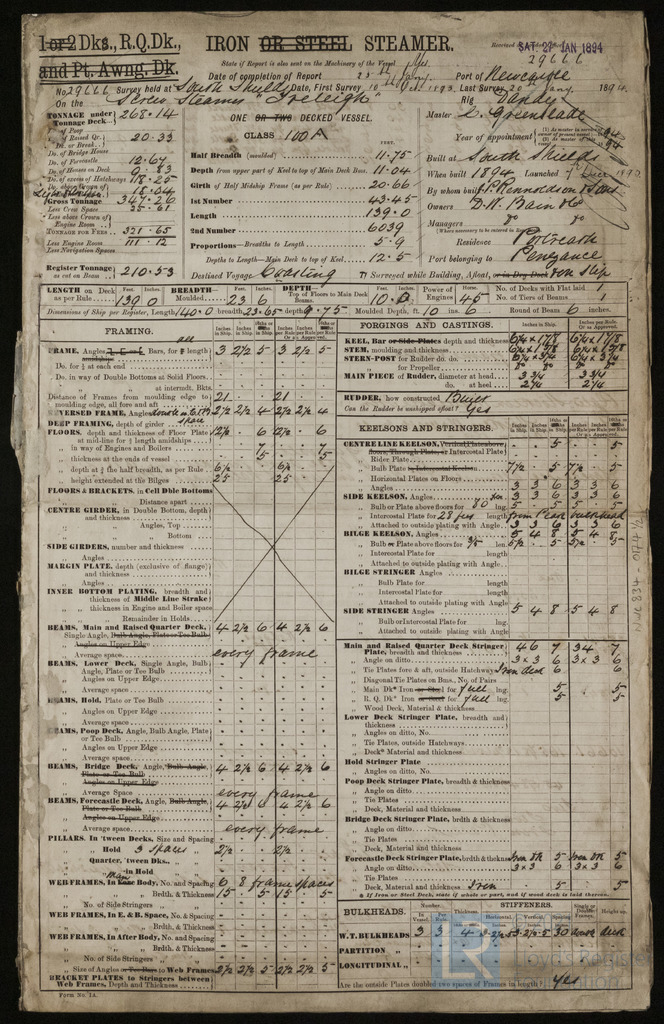 1 or 2 Dks., R.Q.Dk.,
and Pt. Awng. Dk.
IRON OR STEEL STEAMER.
Received
SAT. 27 JAN 1894
29666
State of Report is also sent on the Machinery of the Vessel Yes.
Date of completion of Report 25th Jany.
Port of Newcastle
No. 29666 Survey held at South Shields Date, First Survey 10th Oct. 1893 Last Survey 20 Jany. 1894
On the Screw Steamer "Treleigh"
Rig Dandy
TONNAGE under Tonnage Deck 268.14
ONE OR TWO DECKED VESSEL.
CLASS 100A
Master
Year of appointment
Do. of Poop
Do. of Raised Qr. Do. or Break 20.33
Do. of Bridge House
Do. of Forecastle 12.67
Do. of Houses on Deck 9.83
Do. of excess of Hatchways 18.25
18.04
Gross Tonnage 347.26
Less Crew Space 25.61
Less above Crown of Engine Room
TONNAGE FOR FEES 321.65
Less Engine Room 111.12
Less Navigation Spaces
Register Tonnage as cut on Beam 210.53
Half Breadth (moulded) 11.75
Depth from upper part of Keel to top of Main Deck Bms. 11.04
Girth of Half Midship Frame (as per Rule) 20.66
1st Number 43.45
Length 139.0
2nd Number 6039
Proportions—Breadths to Length 5.9
Depths to Length—Main Deck to top of Keel 12.5
Destined Voyage Coasting
Built at South Shields
When built 1894 Launched
By whom built J. P. Rennoldson & Sons
Owners D. W. Bain & Co
Managers do do
(Where necessary to be entered in
Residence Portreath
Port belonging to Penzance
If Surveyed while Building, Afloat, or in Dry Dock on Slip
LENGTH on Deck as per Rule 139 0
BREADTH— Moulded 23 6
DEPTH— Top of Floors to Main Deck Beams 10 0
Power of Engines 45 Horse.
No. of Decks with Flat laid 1
No. of Tiers of Beams 1
Dimensions of Ship per Register, Length 140.0 breadth 23.65 depth 9.75
Moulded Depth, ft. 10 ins 6
Round of Beam 6 inches
FRAMING.
FRAME, Angles Bars, for ⅗ length amidships 3 2½ 5 3 2½ 5
Do. for ⅕ at each end
Do. in way of Double Bottoms at Solid Floors
" " at intermdt. Bkts.
Distance of Frames from moulding edge to moulding edge, all fore and aft 21 21
REVERSED FRAME, Angles 2½ 2½ 4 2½ 2½ 4
DEEP FRAMING, depth of girder
FLOORS, depth and thickness of Floor Plate at mid-line for ½ length amidships 12½ 6 12½ 6
" in way of Engines and Boilers 7 7
" thickness at the ends of vessel 5 5
" depth at ¾ the half breadth, as per Rule 6½ 6½
" height extended at the Bilges 25 25
FLOORS & BRACKETS, in Cell Dble Bottoms
" Distance apart
CENTRE GIRDER, in Double Bottom, depth and thickness
" Angles, Top
" " Bottom
SIDE GIRDERS, number and thickness
" Angles
MARGIN PLATE, depth (exclusive of flange) and thickness
" Angles
INNER BOTTOM PLATING, breadth and thickness of Middle Line Strake
" thickness in Engine and Boiler space
" Remainder in Holds
BEAMS, Main and Raised Quarter Deck, Single Angle, Bulb Angle, Plate or Tee Bulb 4 2½ 6 4 2½ 6
" Angles on Upper Edge
" Average space every frame
BEAMS, Lower Deck, Single Angle, Bulb Angle, Plate or Tee Bulb
" Angles on Upper Edge
" Average space
BEAMS, Hold, Plate or Tee Bulb
" Angles on Upper Edge
" Average space
BEAMS, Poop Deck, Angle, Bulb Angle, Plate or Tee Bulb
" Angles on Upper Edge
" Average space
BEAMS, Bridge Deck, Angle, Bulb Angle, Plate or Tee Bulb 4 2½ 6 4 2½ 6
" Angles on Upper Edge
" Average Space every frame
BEAMS, Forecastle Deck, Angle, Bulb Angle, Plate or Tee Bulb 4 2½ 6 4 2½ 6
" Angles on Upper Edge
" Average space every frame
PILLARS, In 'tween Decks, Size and Spacing
" Hold 3 spaces 2½ 2½
" Quarter, 'twn Dks.,
" in Hold
WEB FRAMES, In Fore Body, No. and Spacing 6 8 frame spaces
" Brdth. & Thickness 15 5 15 5
" No. of Side Stringers
WEB FRAMES, In E. & B. Space, No. and Spacing
" Brdth. & Thickness
WEB FRAMES, In After Body, No. and Spacing
" Brdth. & Thickness
" No. of Side Stringers
" Size of Angles or Tee Bars to Web Frames 2½ 2½ 5 2½ 2½ 5
BRACKET PLATES to Stringers between Web Frames, Depth and Thickness
Form No. 1A.
FORGINGS AND CASTINGS.
KEEL, Bar or Side Plates depth and thickness
STEM, moulding and thickness
STERN-POST for Rudder do. do.
" for Propeller
MAIN PIECE of Rudder, diameter at head 3¾ 3¾
" do. at heel 2¼ 2¼
RUDDER, how constructed
Can the Rudder be unshipped afloat? Yes
KEELSONS AND STRINGERS.
CENTRE LINE KEELSON, Vertical Plate above floors, Through Plate, or Intercostal Plate 5 5
" Rider Plate
" Bulb Plate to Intercostal Keelson 7½ 5 7½ 5
" Horizontal Plates on Floors
" Angles 3 3 6 3 3 6
SIDE KEELSON, Angles 3 3 6 3 3 6
" Bulb or Plate above floors for 30 lng.
" Intercostal Plate for 28 feet length from Peak bulkhead
" Attached to outside plating with Angle 3 3 6 3 3 6
BILGE KEELSON, Angles 5 4 8 5 4 8
" Bulb or Plate above floors for ⅗ len. 5½ 5 5½ 5
" Intercostal Plate for length
" Attached to outside plating with Angle
BILGE STRINGER Angles
" Bulb Plate for length
" Intercostal Plate for length
" Attached to outside plating with Angle
SIDE STRINGER Angles 5 4 8 5 4 8
" Bulb or Intercostal Plate for lng.
" Attached to outside plating with Angle
Main and Raised Quarter Deck Stringer Plate, breadth and thickness 46 7 34 7
" Angle on ditto 3×3 6 3×3 6
" Tie Plates fore & aft, outside Hatchways Iron deck 6 6
" Diagonal Tie Plates on Bms., No. of Pairs
" Main Dk* Iron or Steel for full lng. 5 5
" R. Q. Dk* Iron or Steel for full lng. 5 5
" Wood Deck, Material & thickness
Lower Deck Stringer Plate, breadth and thickness
" Angles on ditto, No.
" Tie Plates, outside Hatchways
" Deck* Material and thickness
Hold Stringer Plate
" Angles on ditto, No.
Poop Deck Stringer Plate, breadth & thickness
" Angle on ditto
" Tie Plates
" Deck, Material and thickness
Bridge Deck Stringer Plate, brdth & thickness
" Angle on ditto
" Tie Plates
" Deck, Material and thickness
Forecastle Deck Stringer Plate, brdth & thickness Iron dk 5 Iron dk 5
" Angle on ditto 3×3 6 3×3 6
" Tie Plates
" Deck, Material and thickness Iron 5 5
* If Iron or Steel Deck, state if whole or part, and if wood deck is laid thereon.
BULKHEADS.
STIFFENERS.
W.T. BULKHEADS 3 3 4 30 deck
PARTITION "
LONGITUDINAL "
Are the outside Plates doubled two spaces of Frames in length? Yes
LR
Lloyd's Register
Foundation